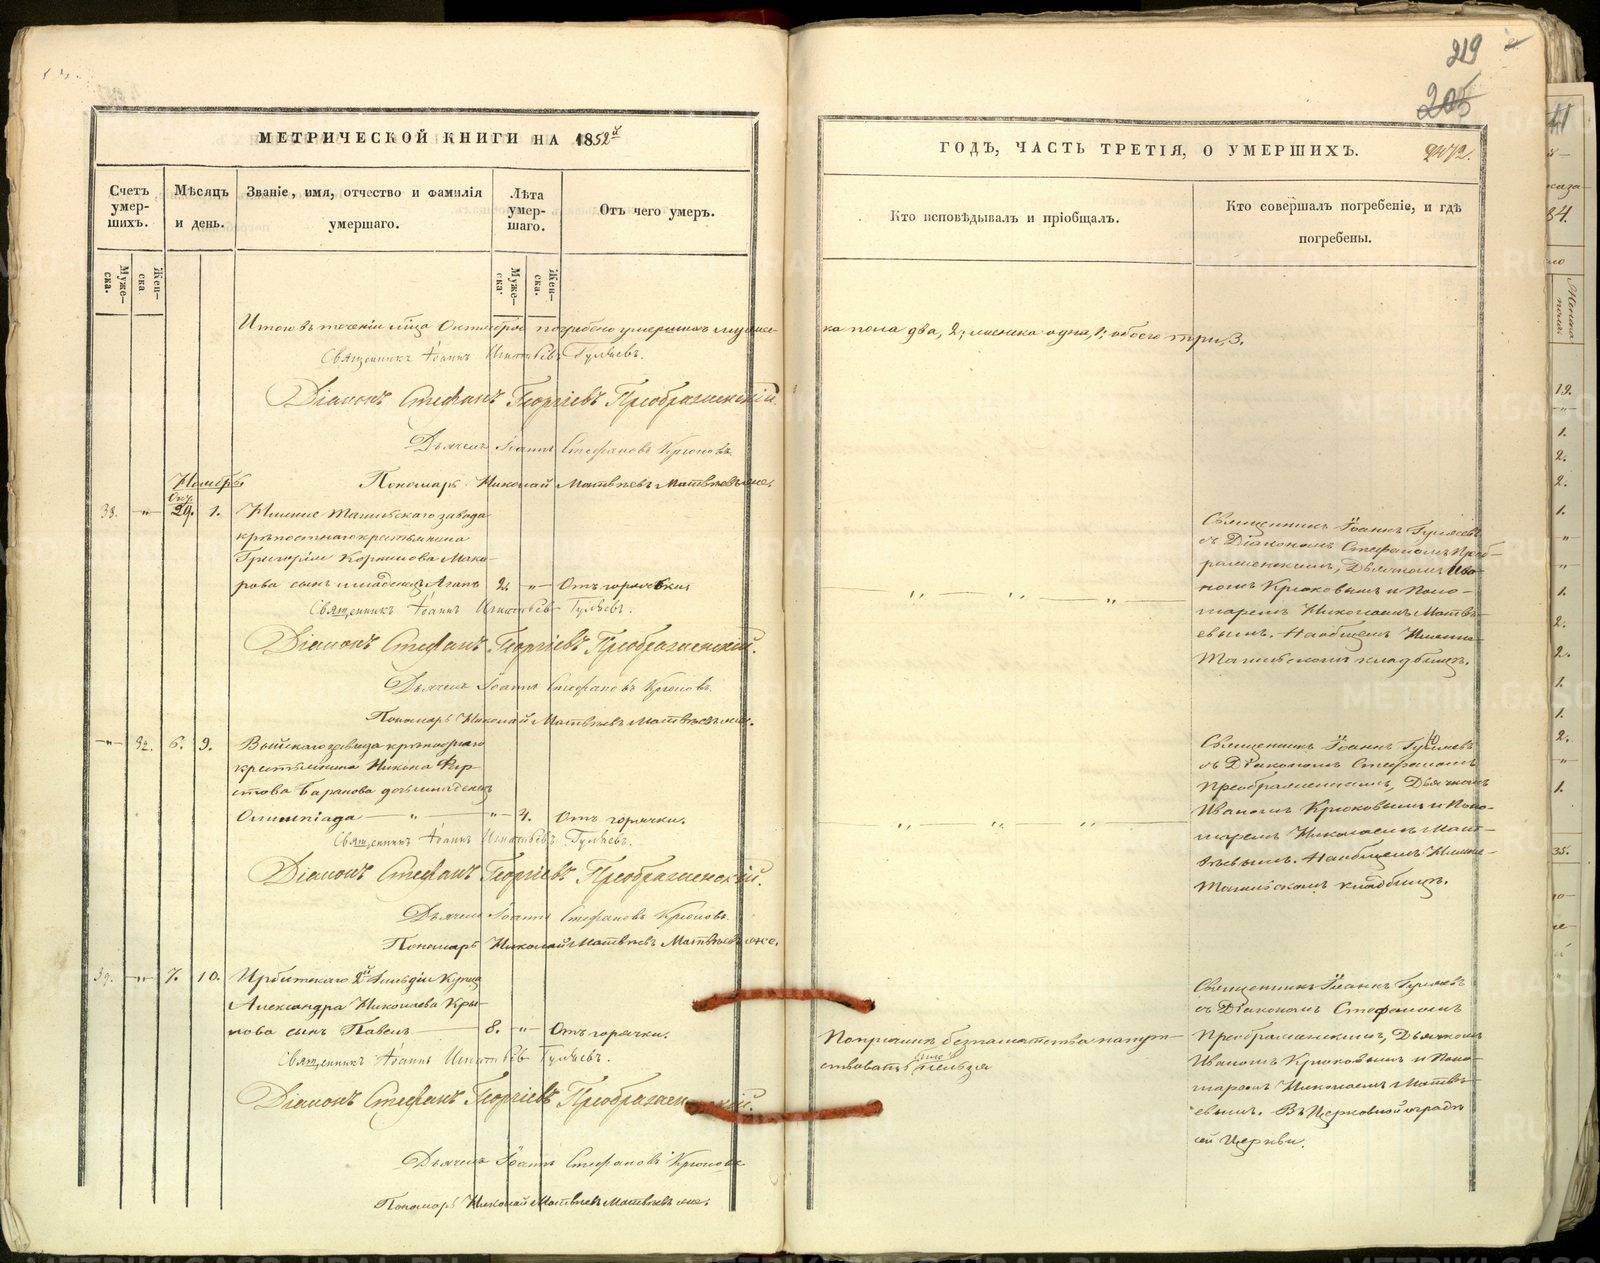 219
205
МЕТРИЧЕСКОЙ КНИГИ НА 1852й
ГОДЪ, ЧАСТЬ ТРЕТІЯ, О УМЕРШИХЪ.
Счетъ умер-
шихъ.
Мѣсяцъ
и день.
Званіе, имя, отчество и фамилія
умершаго.
Лѣта
умер-
шаго.
Отъ чего умеръ.
Кто исповѣдывалъ и пріобщалъ.
Кто совершалъ погребеніе, и гдѣ
погребены.
Муже-
ска.
Жен-
ска
Муже-
ска.
Жен-
ска.
Итого въ теченіи мца Октября погребено умершихъ муже-
ка пола два, 2; женска одна, 1; обоего три, 3.
Священникъ Іоаннъ Игнатьевъ Гуляевъ.
Діаконъ Стефанъ Георгіевъ Преображенскій.
Дьячекъ Іоаннъ Стефановъ Крюковъ.
Пономарь Николай Матвѣевъ
Ноябрь
Окт.
38. „ 29. 1.
завода
крѣпостнаго крестьянина
Григорія Корнилова Мака-
рова сынъ младенецъ Агапъ 2. „ Отъ горячки
Священникъ Іоаннъ Гуляевъ
съ Діакономъ Стефаномъ Преоб-
раженскимъ, Дьячкомъ Ива-
номъ Крюковымъ и Поно-
маремъ Николаемъ Матвѣ-
евымъ. На общемъ
кладбищѣ.
Священникъ Іоаннъ Игнатьевъ Гуляевъ.
Діаконъ Стефанъ Георгіевъ Преображенскій.
Дьячекъ Іоаннъ Стефановъ Крюковъ.
Пономарь Николай Матвѣевъ
„ 32. 6. 9.
завода крѣпостнаго
крестьянина Никона Фир-
стова Баранова дочь младенецъ
Олимпіада „ „ 4. Отъ горячки.
Священникъ Іоаннъ Гуляевъ
съ Діакономъ Стефаномъ
Преображенскимъ, Дьячкомъ
Иваномъ Крюковымъ и Поно-
маремъ Николаемъ Мат-
вѣевымъ. На общемъ
кладбищѣ.
Священникъ Іоаннъ Игнатьевъ Гуляевъ.
Діаконъ Стефанъ Георгіевъ Преображенскій.
Дьячекъ Іоаннъ Стефановъ Крюковъ.
Пономарь Николай Матвѣевъ
39. „ 7. 10. Ирбитскаго 2й Гильдіи Купца
Александра Николаева Кры-
лова сынъ Павелъ 8. „ Отъ горячки.
По причинѣ безпамятства напут-
ствовать было нельзя
Священникъ Іоаннъ Гуляевъ
съ Діакономъ Стефаномъ
Преображенскимъ, Дьячкомъ
Иваномъ Крюковымъ и Поно-
маремъ Николаемъ Матвѣ-
евымъ. Въ Церковной оградѣ
сей Церкви.
Священникъ Іоаннъ Игнатьевъ Гуляевъ.
Діаконъ Стефанъ Георгіевъ Преображенскій.
Дьячекъ Іоаннъ Стефановъ Крюковъ
Пономарь Николай Матвѣевъ